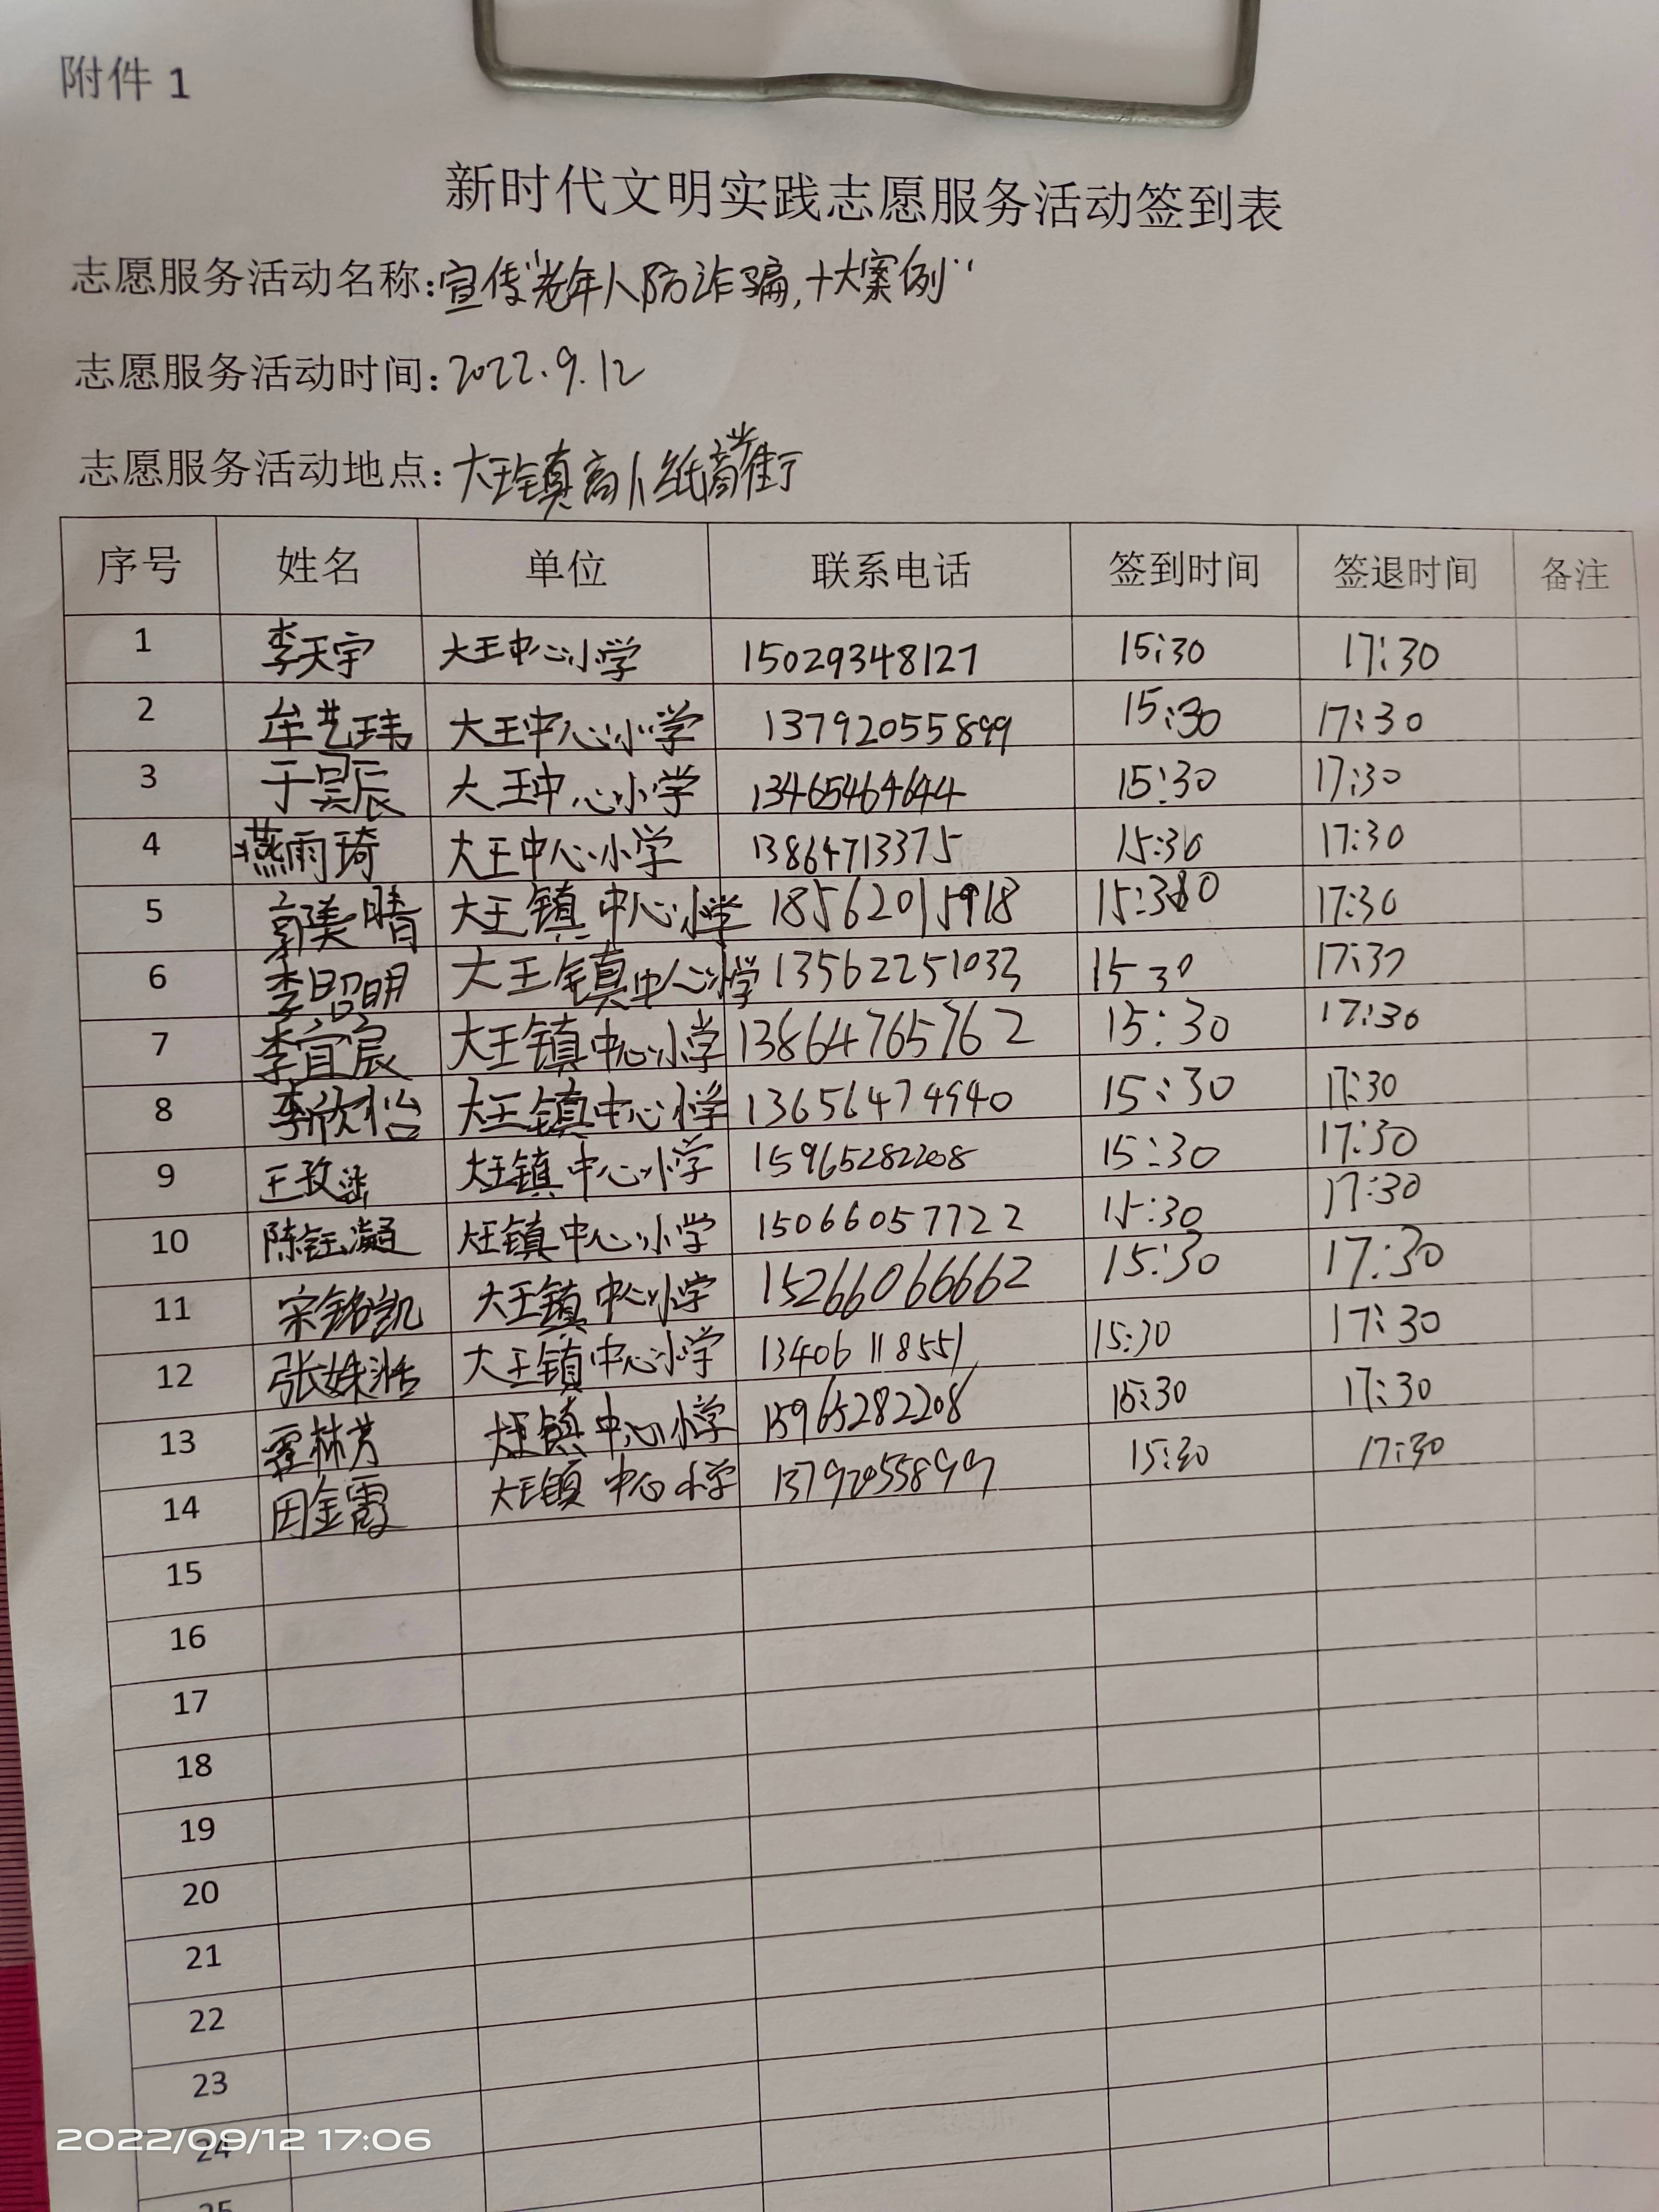 附件 1
新时代文明实践志愿服务活动签到表
志愿服务活动名称:宣传"老年人防诈骗,十大案例"
志愿服务活动时间:2022.9.12
志愿服务活动地点:大王镇高小纸
序号 姓名 单位 联系电话 签到时间 签退时间 备注
1 李天宇 大王中心小学 15029348127 15:30 17:30
2 牟艺玮 大王中心小学 13792055899 15:30 17:30
3 于昊辰 大王中心小学 13465464644 15:30 17:30
4 燕雨琦 大王中心小学 13864713375 15:30 17:30
5 郭美晴 大王镇中心小学 18562015918 15:30 17:30
6 李昭明 大王镇中心小学 13562251033 15 30 17:30
7 李宜宸 大王镇中心小学 13864765762 15:30 17:30
8 李欣怡 大王镇中心小学 13656474940 15:30 17:30
9 王孜 大王镇中心小学 15965282208 15:30 17:30
10 陈钰凝 大王镇中心小学 15066057722 15:30 17:30
11 宋铭凯 大王镇中心小学 15266066662 15:30 17:30
12 张姝湉 大王镇中心小学 13406118551 15:30 17:30
13 霍林芳 大王镇中心小学 15965282208 15:30 17:30
14 田金霞 大王镇中心小学 13792055899 15:30 17:30
15
16
17
18
19
20
21
22
23
24
25
2022/09/12 17:06